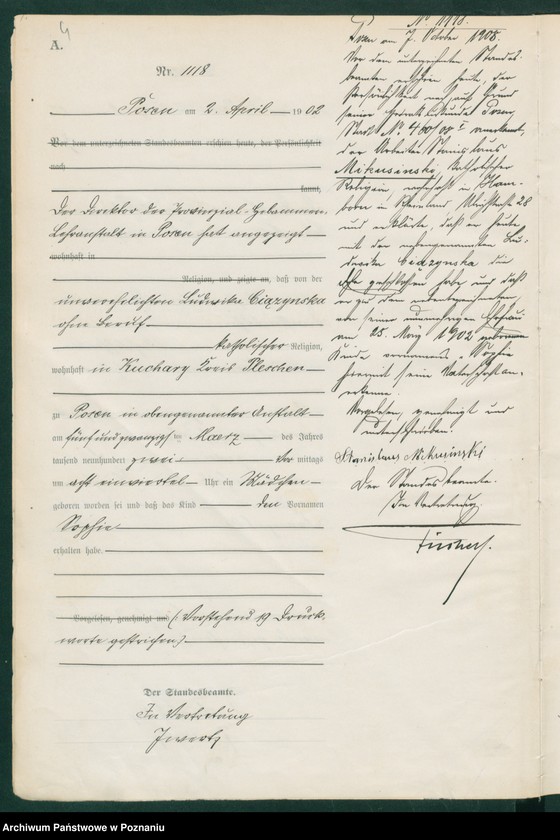 A.
Nr. 1118
Posen am 2. April 1902
Vor dem unterzeichneten Standesbeamten erschien heute, der Persönlichkeit
nach
kannt,
Der Direktor der Provinzial-Hebammen-
Lehranstalt in Posen hat angezeigt
wohnhaft in
Religion, und zeigte an, daß von der
unverehelichten Ludwika Ciazynska
ohne Beruf
katholischer Religion,
wohnhaft in Kuchary Kreis Pleschen
zu Posen in obengenannter Anstalt
am fünfundzwanzigsten Maerz des Jahres
tausend neunhundert zwei Vormittags
um acht einviertel Uhr ein Mädchen
geboren worden sei und daß das Kind den Vornamen
Sophie
erhalten habe.
Vorgelesen, genehmigt und (Vorstehend 19 Druck-
worte gestrichen)
Der Standesbeamte.
In Vertretung
Nr. 1118.
Posen am 7. October 1908.
Vor dem unterzeichneten Standes-
beamten erschien heute, der
Persönlichkeit nach auf Grund
seiner Posen
Stadt Nr. 400/08 anerkannt,
der Arbeiter Stanislaus
Mikusinski, katholischer
Religion, wohnhaft in Ham-
born 28
und erklärte, daß er heute
mit der nebengenannten Lu-
dwika Ciazynska die
Ehe geschlossen habe und daß
er zu dem nebenbezeichneten
von seiner nunmehrigen Ehefrau
am 25. März 1902 geborenen
Kinde vornamens "Sophie"
hiermit seine Vaterschaft an-
erkenne.
Vorgelesen, genehmigt und
unterschrieben:
Stanislaus Mikusinski
Der Standesbeamte.
In Vertretung
Archiwum Państwowe w Poznaniu